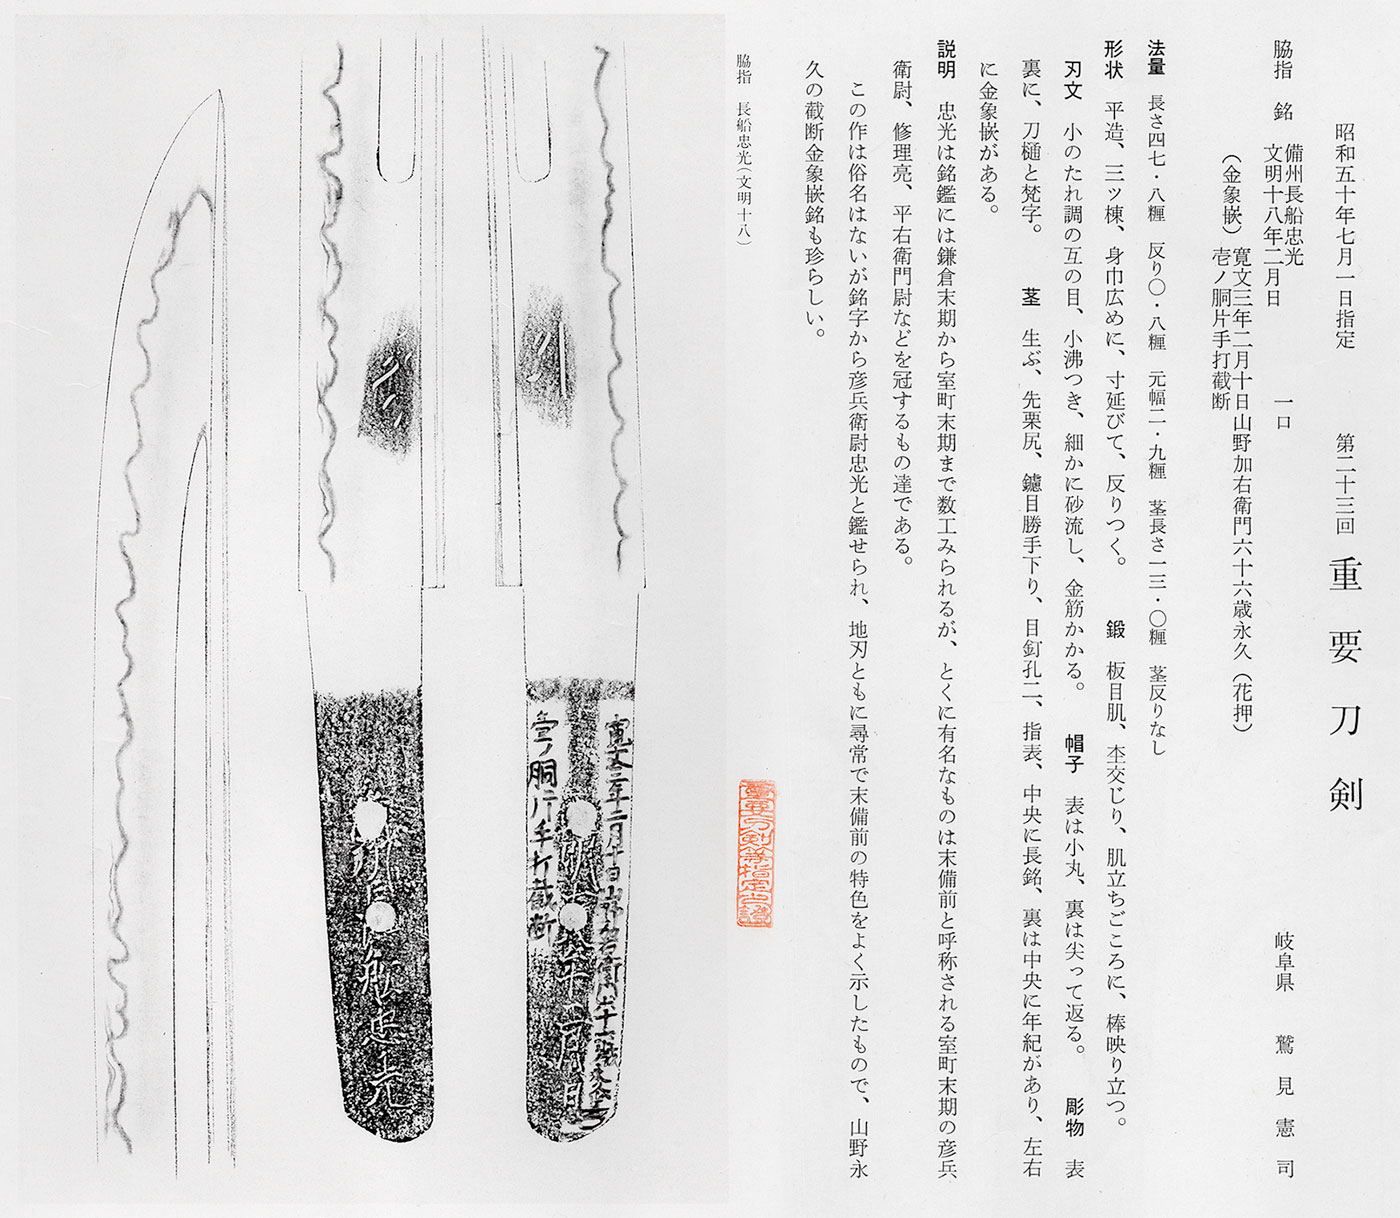 昭和五十年七月一日指定　第二十三回　重要刀剣
脇指　銘　備州長船忠光　一口　岐阜県　鷲見憲司
文明十八年二月日
（金象嵌）寛文三年二月十日山野加右衛門六十六歳永久（花押）
壱ノ胴片手打截断
法量　長さ四七・八糎　反り〇・八糎　元幅二・九糎　茎長さ一三・〇糎　茎反りなし
形状　平造、三ッ棟、身巾広めに、寸延びて、反りつく。　鍛　板目肌、杢交じり、肌立ちごころに、棒映り立つ。
刃文　小のたれ調の互の目、小沸つき、細かに砂流し、金筋かかる。　帽子　表は小丸、裏は尖って返る。　彫物　表
裏に、刀樋と梵字。　茎　生ぶ、先栗尻、鑢目勝手下り、目釘孔二、指表、中央に長銘、裏は中央に年紀があり、左右
に金象嵌がある。
説明　忠光は銘鑑には鎌倉末期から室町末期まで数工みられるが、とくに有名なものは末備前と呼称される室町末期の彦兵
衛尉、修理亮、平右衛門尉などを冠するもの達である。
この作は俗名はないが銘字から彦兵衛尉忠光と鑑せられ、地刃ともに尋常で末備前の特色をよく示したもので、山野永
久の截断金象嵌銘も珍らしい。
脇指　長船忠光（文明十八）
重要刀剣等指定之證
寛文三年二月十日山野加右衛門六十六歳永久
壱ノ胴片手打截断
文明十八年二月日
備州長船忠光